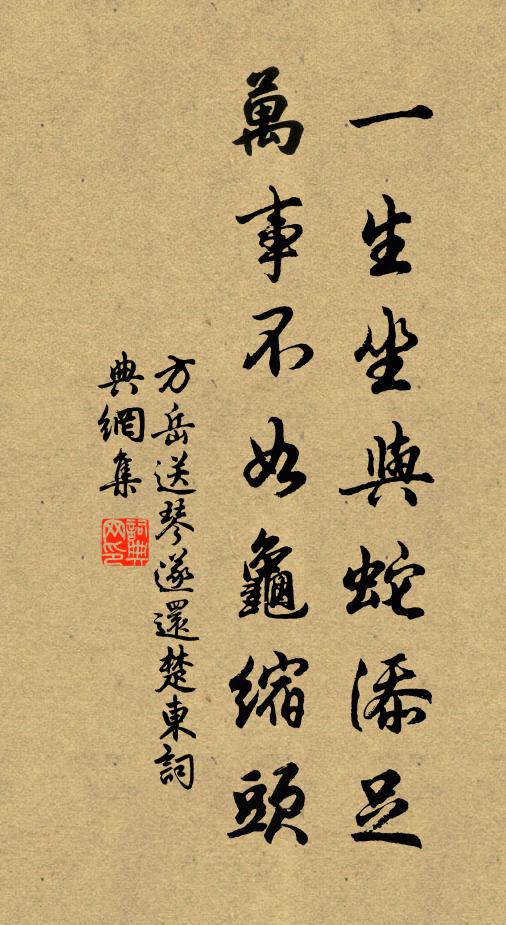 一生坐與蛇添足
萬事不如龜縮頭
方岳送琴遂還楚東詞
典網集
詞典網印